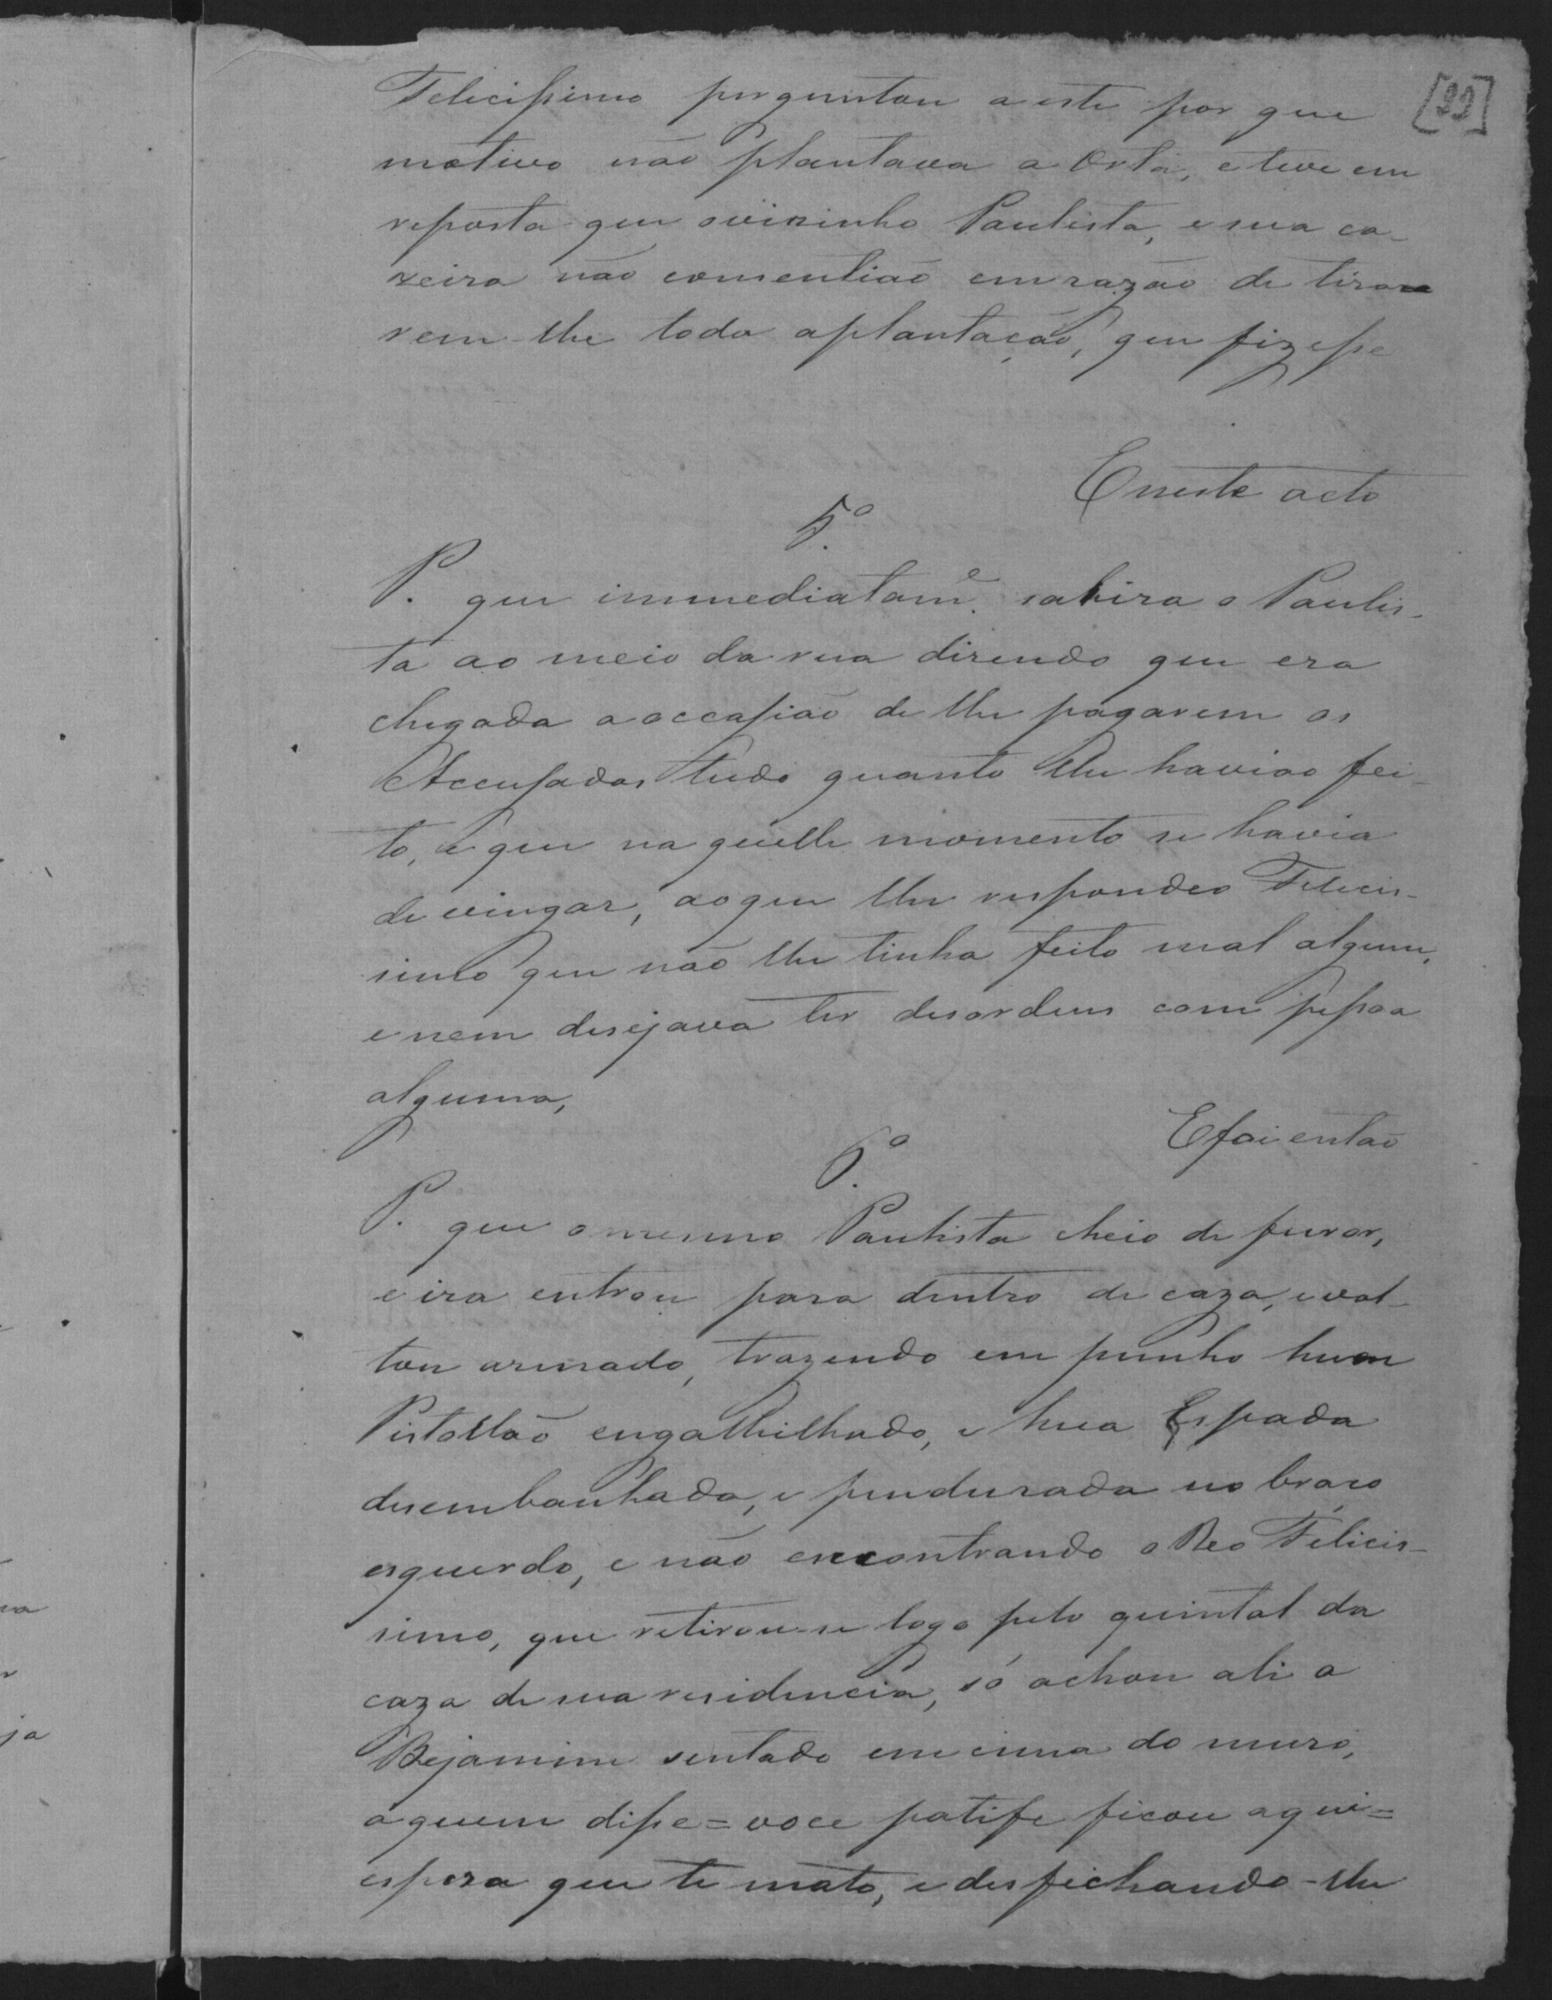 [22]
Felicissimo perguntou a este por que
motivo não plantava a Orta, e teve em
reposta que ovizinho Paulista, e sua ca-
zeira não consentião em razão de tira-
rem-lhe toda aplantação, que fizesse
E neste acto
5.º
P. que immediatam.e sahira o Paulis-
ta ao meio da rua dizendo que era
chegada a occasião de lhe pagarem os
Accusados tudo quanto lhe havião fei-
to, e que na quelle momento se havia
de vingar, aoque lhe respondeo Felicis-
simo que não lhe tinha feito mal algum,
e nem desejava ter desordens com pessoa
alguma,
E foi então
6.º
P. que o mesmo Paulista cheio de furor,
e ira entrou para dentro de caza, e vol-
tou armado, trazendo em punho hum
Pistollão engathilhado, e hua Espada
desembanhada, e pendurada no braço
esquerdo, e não encontrando o Reo Felicis-
simo, que retirou-se logo pelo quintal da
caza de sua residencia, só achou ali a
Bejamim sentado em cima do muro,
aquem disse = voce patife ficou aqui =
espera que te mato, e desfechando-lhe